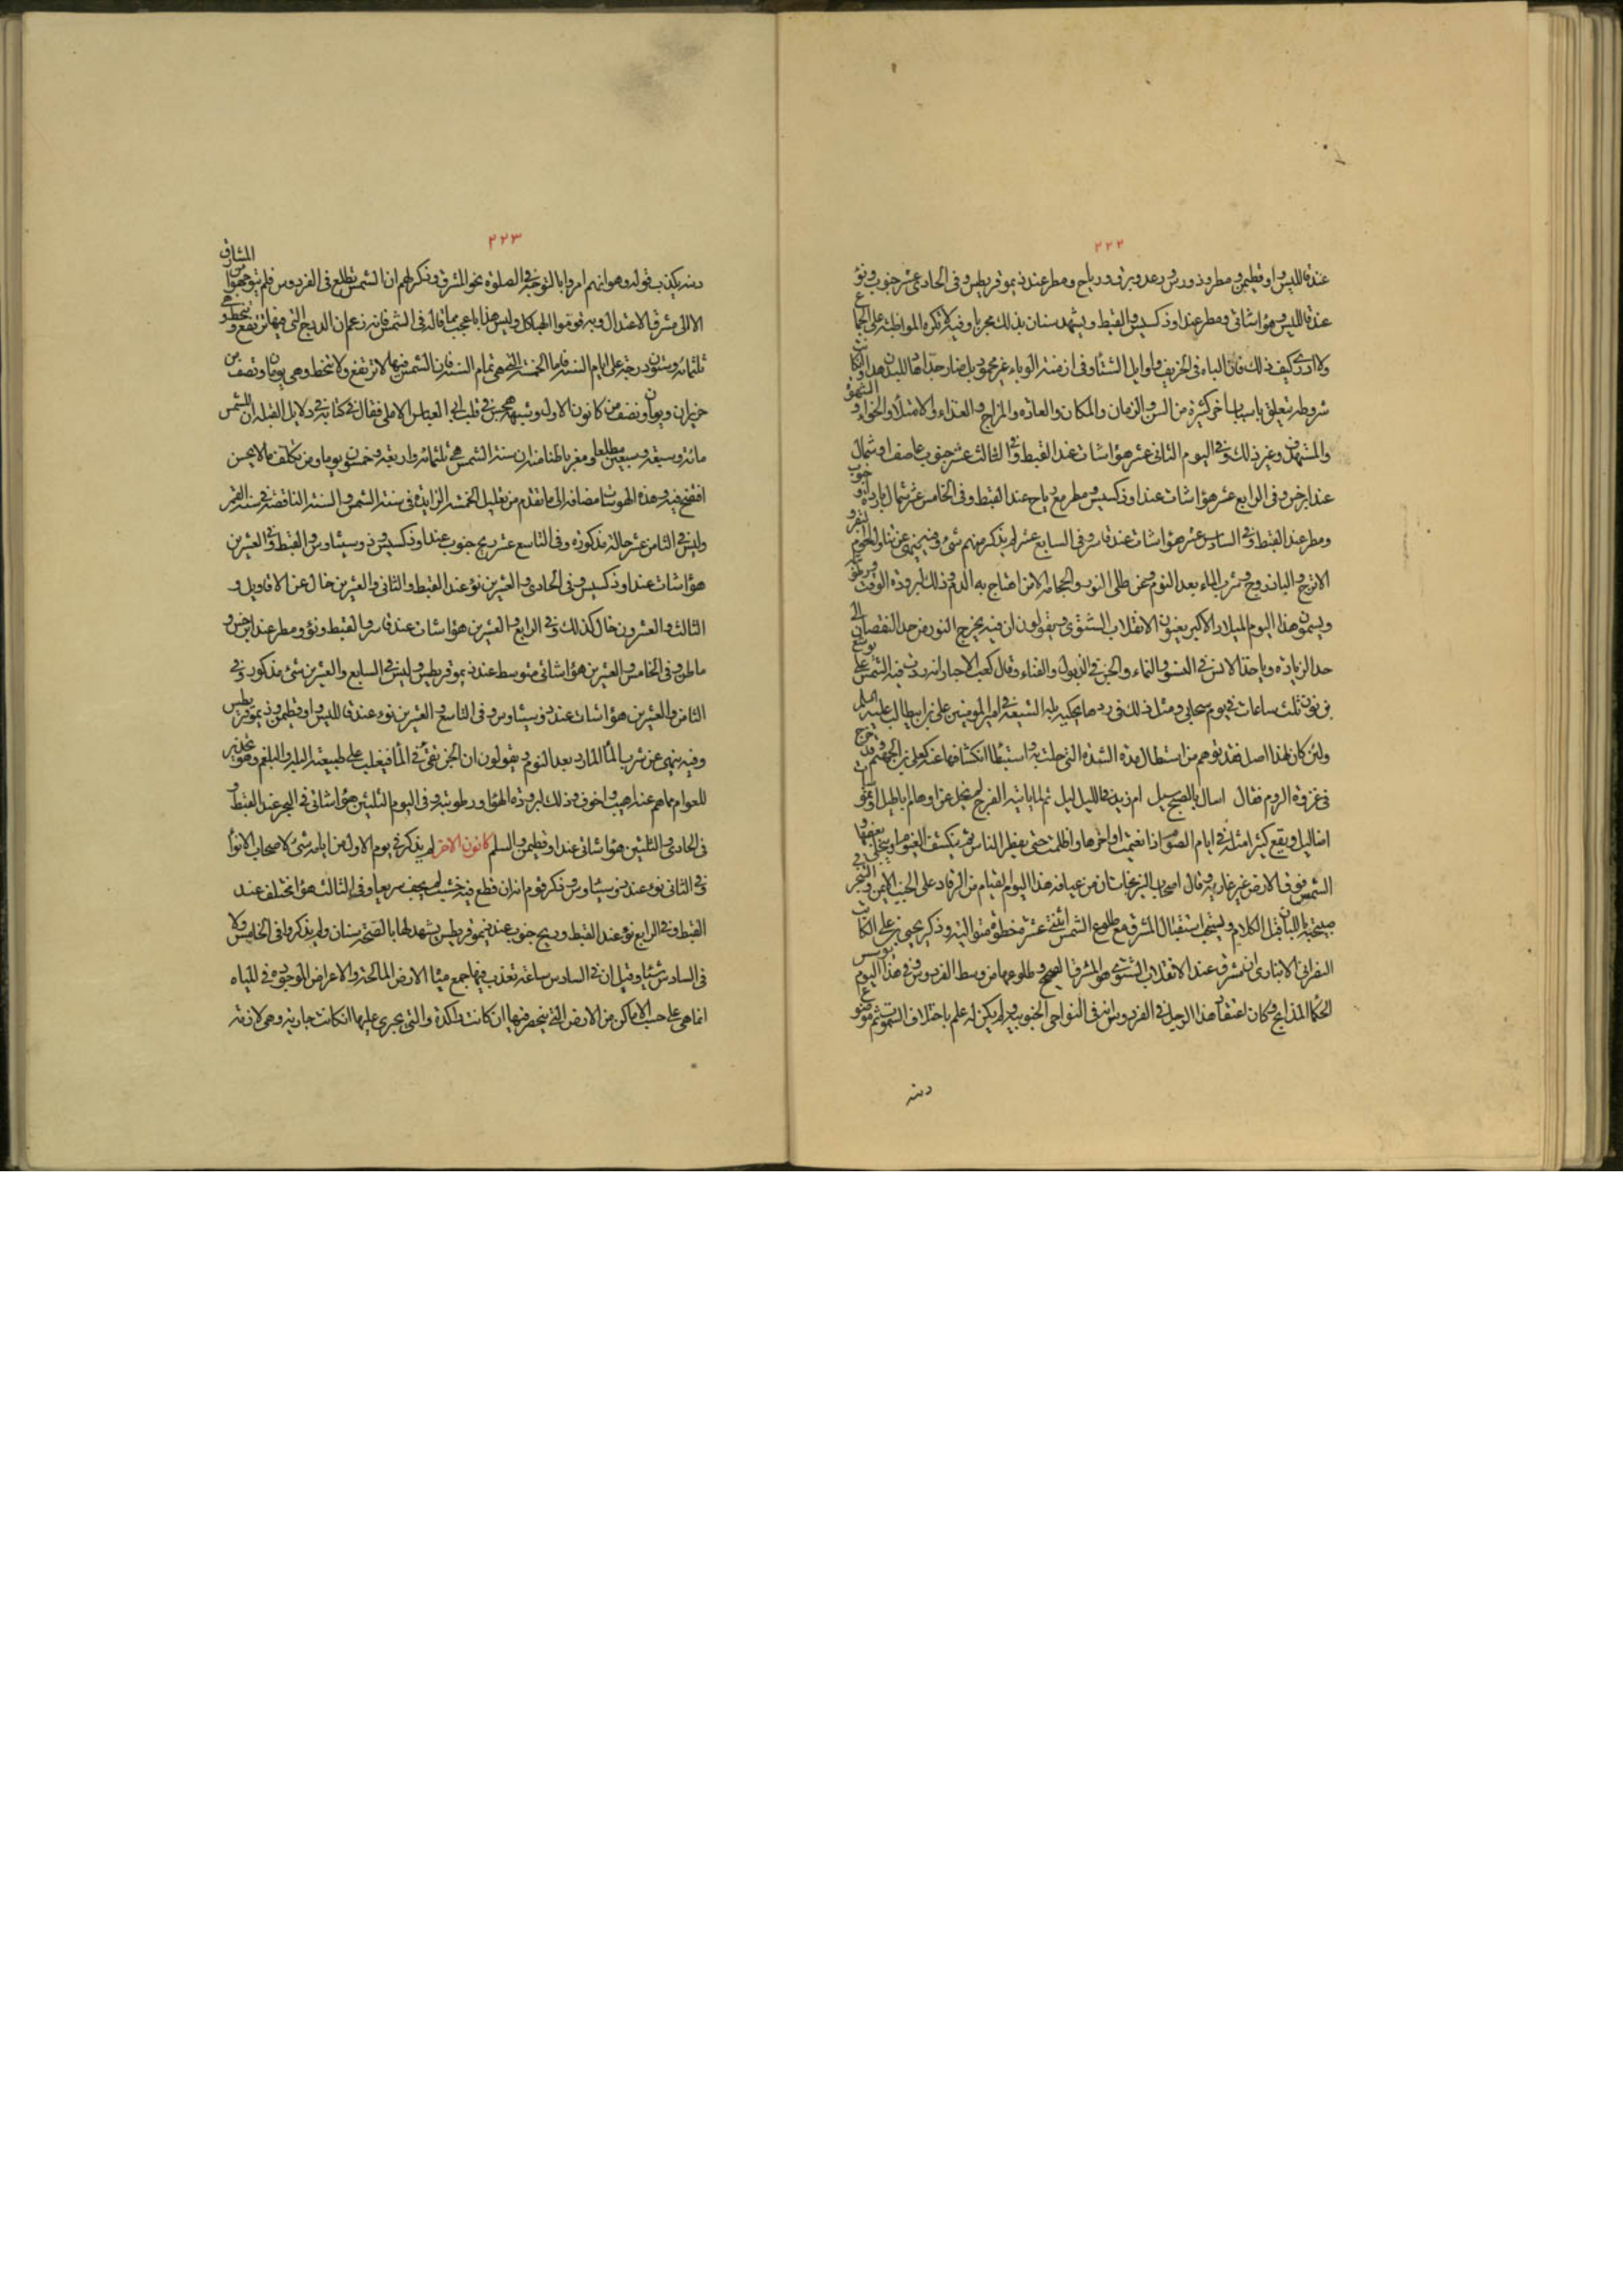 ٢٢٢
عند فاللبس واوقطيمن ومطر وذورس ورعد وبرق ورياح ومطر عند ذيموقريطس وفى الحادى عشر جنوب ونؤ
عند فاللبس وهواء شاتى ومطر عند اوذكسيس والقبط ويشهد سنان بذلك مجربا وفيه تكره المواظبة على الجماع
ولا ادرى كيف ذلك فان الباه فى الخريف واوايل الشتاء وفى ازمنة الوباء غير محمودة بل ضار جدا
شروطه تتعلق باسباب اخر كثيرة من السن والزمان والمكان والعادة والمزاج والغذاء والامتلاء والخواء والشهوة
والمشتهى وغير ذلك وفى اليوم الثانى عشر هواء شات عند القبط وفى الثالث عشر جنوب عاصف او شمال
عند ابرخس وفى الرابع عشر هواء شات عند اوذكسيس ومطر مع رياح عند القبط وفى الخامس عشر شمال باردة او جنوب
ومطر عند القبط وفى السادس عشر هواء شات عند قاسر وفى السابع عشر لم يذكر منهم شئ وفيه ينهى عن تناول لحوم البقر و
الاترج والباذروج وشرب الماء بعد النوم وعن طلى النورة والحجامة الا لمن احتاج به الدم وذلك لبرودة الوقت ورطوبته
ويسمون هذا اليوم الميلاد الاكبر يعنون الانقلاب الشتوى ويقولون ان فيه يخرج النور من حد النقصان الى
حد الزيادة وياخذ الانس فى النشو والنماء والجن فى الذبول والفناء وقال كعب الاحبار انه ردت فيه الشمس على يوشع
بن نون ثلث ساعات فى يوم سحابى ومثل ذلك فى ردها يحكيه بله الشيعة فى امير المؤمنين على بن ابيطالب عليه السلم
ولئن كان لهذا اصل فقد توهم من استطال مدة الشدة التى حلت به واستبطا انكشافها عنه كعلى بن الجهم وقد خرج
فى غزوة الروم فقال اسال بالصبح سيل ام زيد فى الليل ليل ثم لما ياتيه الفرج
اضاليل ويقع كثيرا مثله فى ايام الصوم اذا تغيمت اواخرها واظلمت حتى يفطر الناس ثم ينكشف الغيوم او بعضها ويتجلى
الشمس فوق الارض غير غاربة وقال اصحاب النيرنجات ان من عيافة هذا اليوم القيام من الرقاد على الجنب الايمن والتبخر فى
صبيحته باللبان قبل الكلام ويستحب استقبال المشرق مع طلوع الشمس اثنتى عشرة خطوة متوالية وذكر يحيى بن على الكاتب
النصرانى الانبارى ان مشرق عند الانقلاب الشتوى هو المشرق الصحيح وطلوعها من وسط الفردوس وفى هذا اليوم يوسس
الحكماء المذابح وكان اعتقاد هذا الرجل فى الفردوس انه فى النواحى الجنوبية ولم يكن له علم باختلاف السموت ثم موضوع
دينه
٢٢٣
دينه يكذب قوله وهو انهم امروا بالتوجه فى الصلوة نحو المشرق وذكر لهم ان الشمس تطلع فى الفردوس فلم يتوجهوا من المشارق
الا الى مشرق الاعتدال وبه قوموا الهياكل وليس هذا باعجب مما قاله فى الشمس فانه زعم ان الدرج التى فيها ترتفع وتنحط هى
ثلثمائة وستون درجة على ايام السنة فاما الخمسة التى هى تمام السنة فان الشمس فيها لا ترتفع ولا تنحط وهى يومان ونصف من
حزيران ويومان ونصف من كانون الاول ويشبهه هجس فى قلب ابى العباس الاملى فقال فى كتابه فى دلايل القبلة ان للشمس
مائة وسبعة وسبعين مطلعا ومغربا ظنا منه ان سنة الشمس هى ثلثمائة واربعة وخمسون يوما ومن تكلف ما لا يحسن
افتضح فيه وهذه الهوسات مضافة الى ما تقدم من تعليل الخمسة الزايدة فى سنة الشمس والستة الناقصة فى سنة القمر
وليس فى الثامن عشر حالة مذكورة وفى التاسع عشر ريح جنوب عند اوذكسيس وذوسيثاوس والقبط وفى العشرين
هواء شات عند اوذكسيس وفى الحادى والعشرين نؤ عند القبط والثانى والعشرين خال عن الاقاويل و
الثالث والعشرون خال كذلك وفى الرابع والعشرين هواء شات عند قاسر والقبط ونؤ ومطر عند ابرخس و
ماطن وفى الخامس والعشرين هواء شاتى متوسط عند ذيموقريطس وليس فى السابع والعشرين شئ مذكور وفى
الثامن والعشرين هواء شات عند ذوسيثاوس وفى التاسع والعشرين نوء عند فاللبس واوقطيمن وذيموقريطس
وفيه ينهى عن شرب الماء البارد بعد النوم ويقولون ان الجن تقئ فى الماء فيغلب على طبيعته البله والبلغم وهو تحذير
للعوام مما هم عنده اهيب واخوف وذلك لبرودة الهواء ورطوبته وفى اليوم الثلثين هواء شاتى فى البحر عند القبط و
فى الحادى والثلثين هواء شاتى عند اوقطيمن والسلم كانون الاخر لم يذكر فى يوم الاول من ايامه شئ لاصحاب الانواء
وفى الثانى نوء عند ذوسيثاوس وذكر قوم انه ان قطع فيه خشب لم يجف سريعا وفى الثالث هواء مختلف عند
القبط وفى الرابع نؤ عند القبط وريح جنوب عند ذيموقريطس يشهد لها بالصحة سنان ولم يذكروا فى الخامس ولا
فى السادس شيئا وقيل ان فى السادس ساعة تعذب فيها جميع مياه الارض المالحة والاعراض الموجودة فى المياه
انما هى على حسب الاماكن من الارض التى ينحصر فيها ان كانت راكدة والتى يجرى عليها ان كانت جارية وهى لازمة